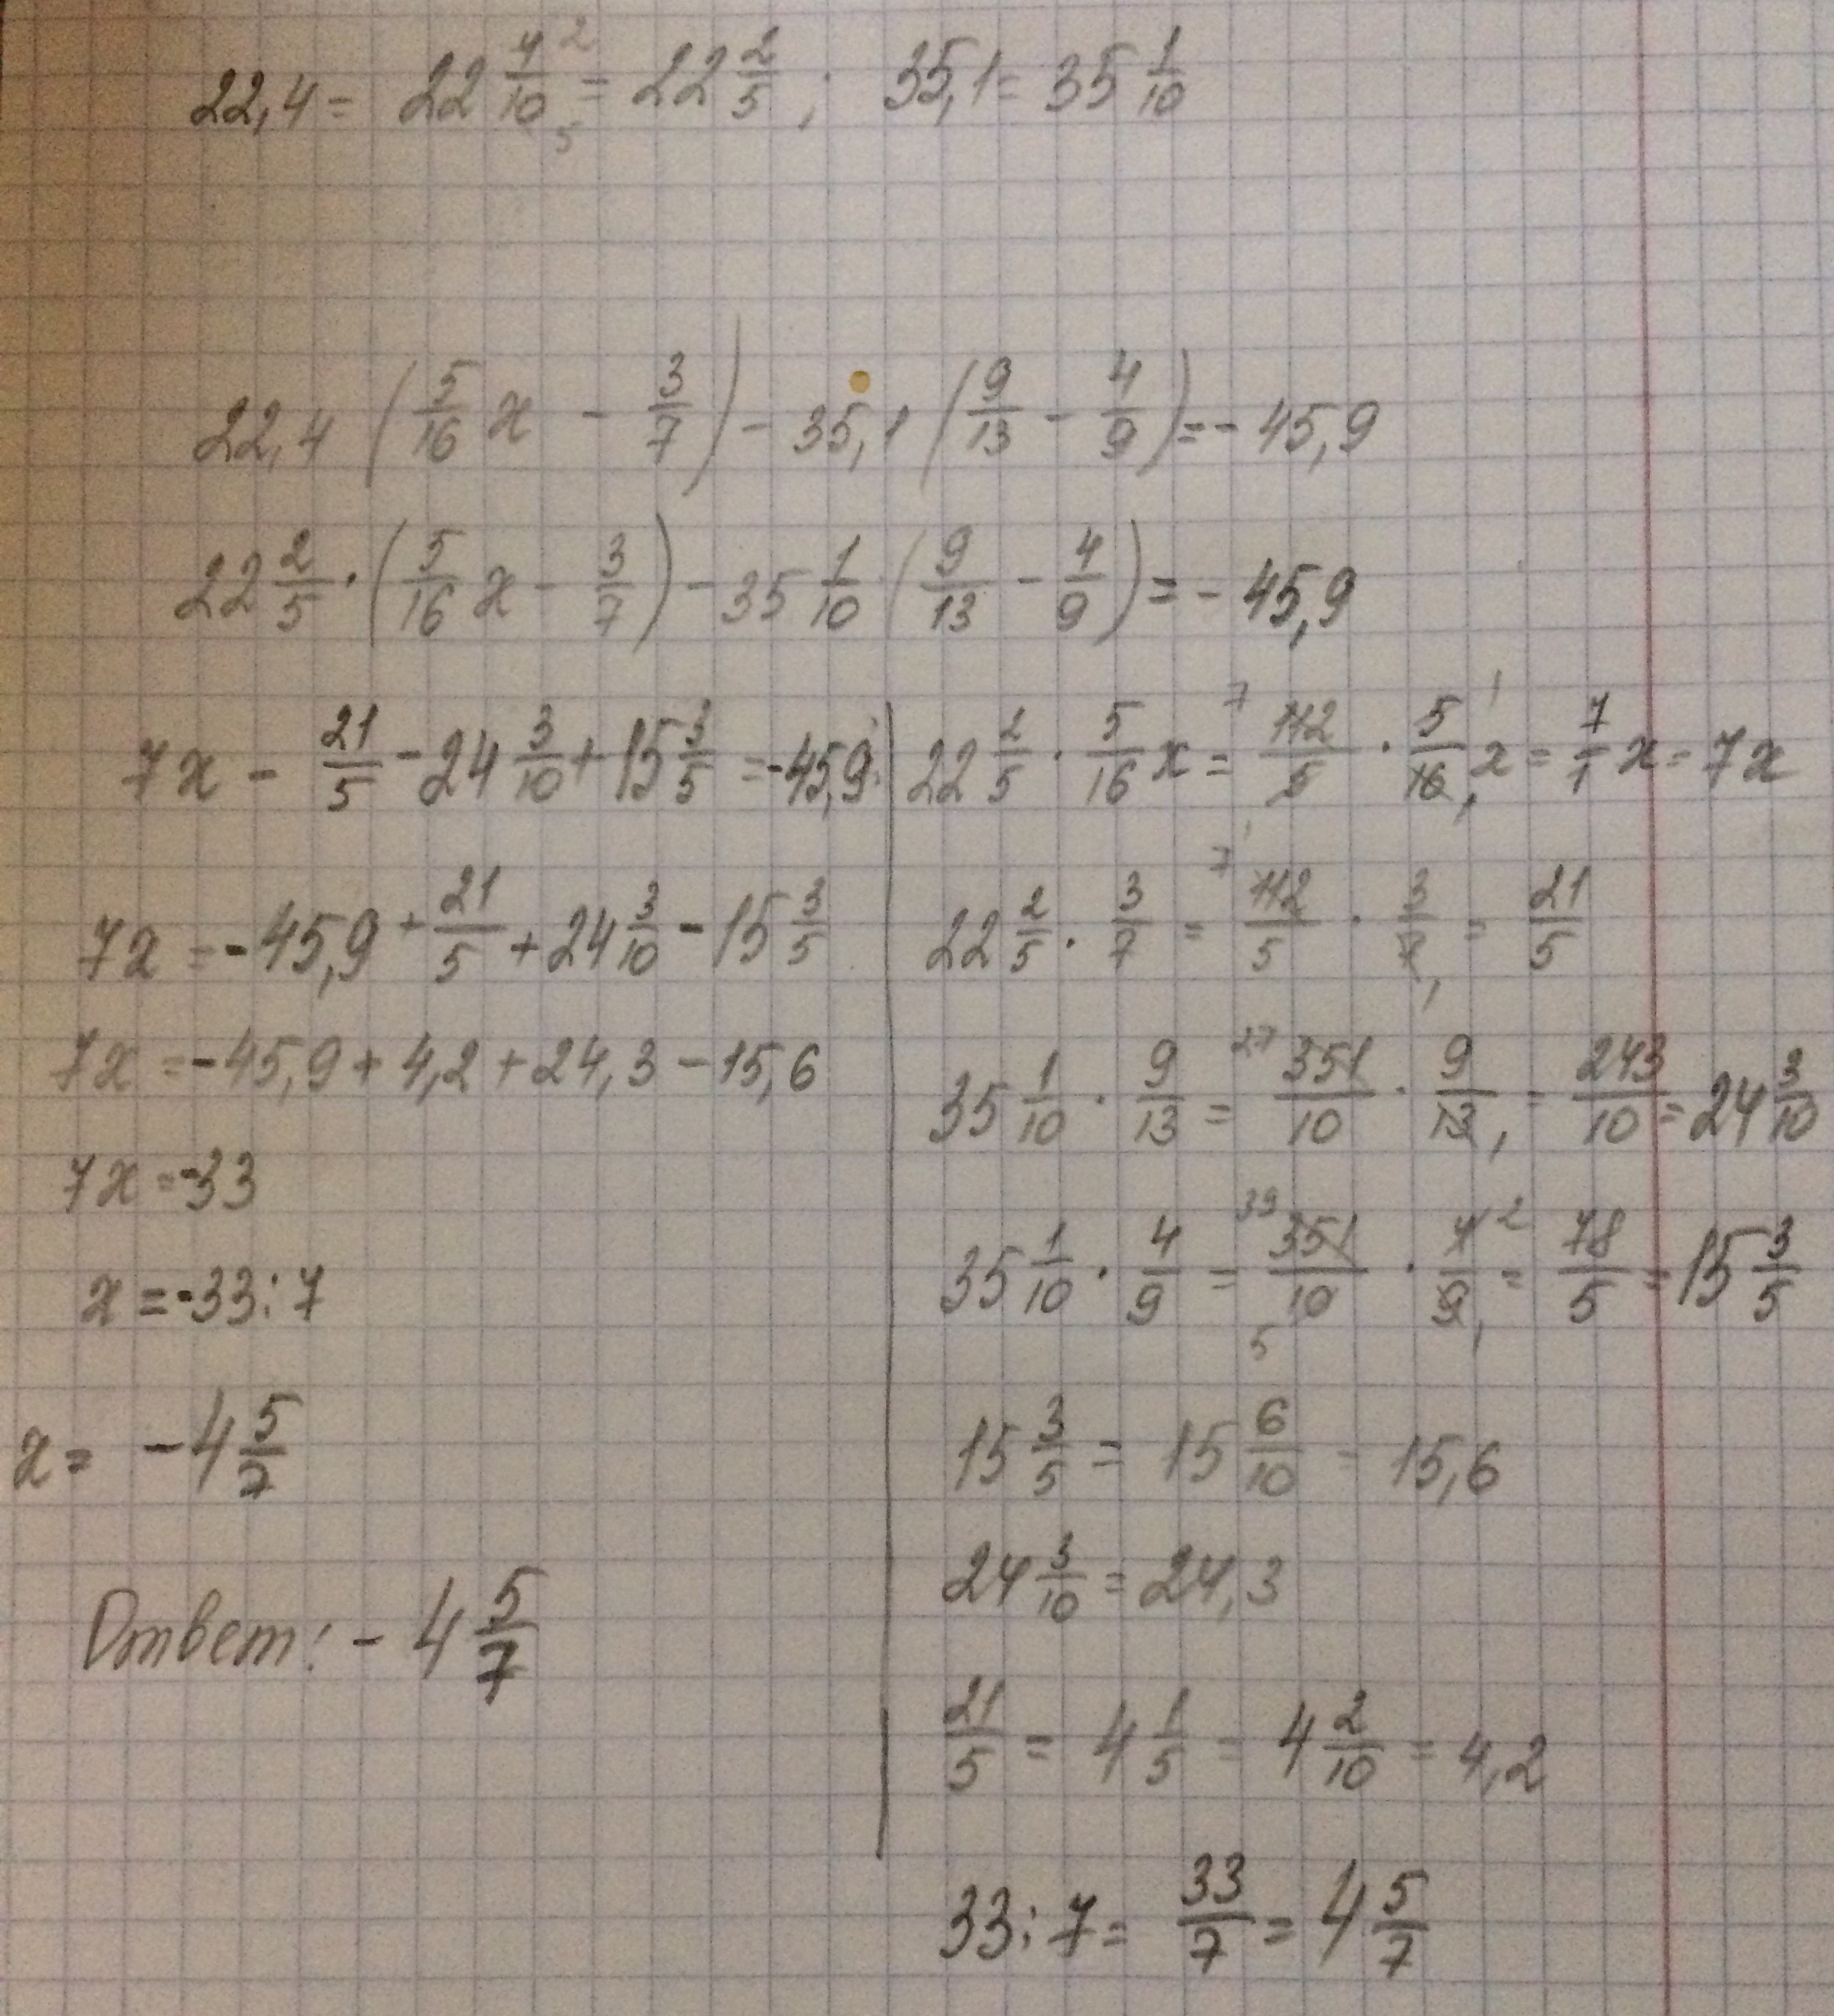 22,4 = 22 4/10 2 5 = 22 2/5 ; 35,1 = 35 1/10
22,4 (5/16 x - 3/7) - 35,1 (9/13 - 4/9) = - 45,9
22 2/5 · (5/16 x - 3/7) - 35 1/10 (9/13 - 4/9) = - 45,9
7x - 21/5 - 24 3/10 + 15 3/5 = -45,9
7x = -45,9 + 21/5 + 24 3/10 - 15 3/5
7x = -45,9 + 4,2 + 24,3 - 15,6
7x = -33
x = -33 : 7
x = - 4 5/7
Ответ: - 4 5/7
22 2/5 · 5/16 x = 7 112/5 · 5/16 1 1 x = 7/1 x = 7x
22 2/5 · 3/7 = 7 112/5 · 3/7 1 = 21/5
35 1/10 · 9/13 = 27 351/10 · 9/13 1 = 243/10 = 24 3/10
35 1/10 · 4/9 = 39 351/10 5 · 4/9 2 1 = 78/5 = 15 3/5
15 3/5 = 15 6/10 = 15,6
24 3/10 = 24,3
21/5 = 4 1/5 = 4 2/10 = 4,2
33 : 7 = 33/7 = 4 5/7